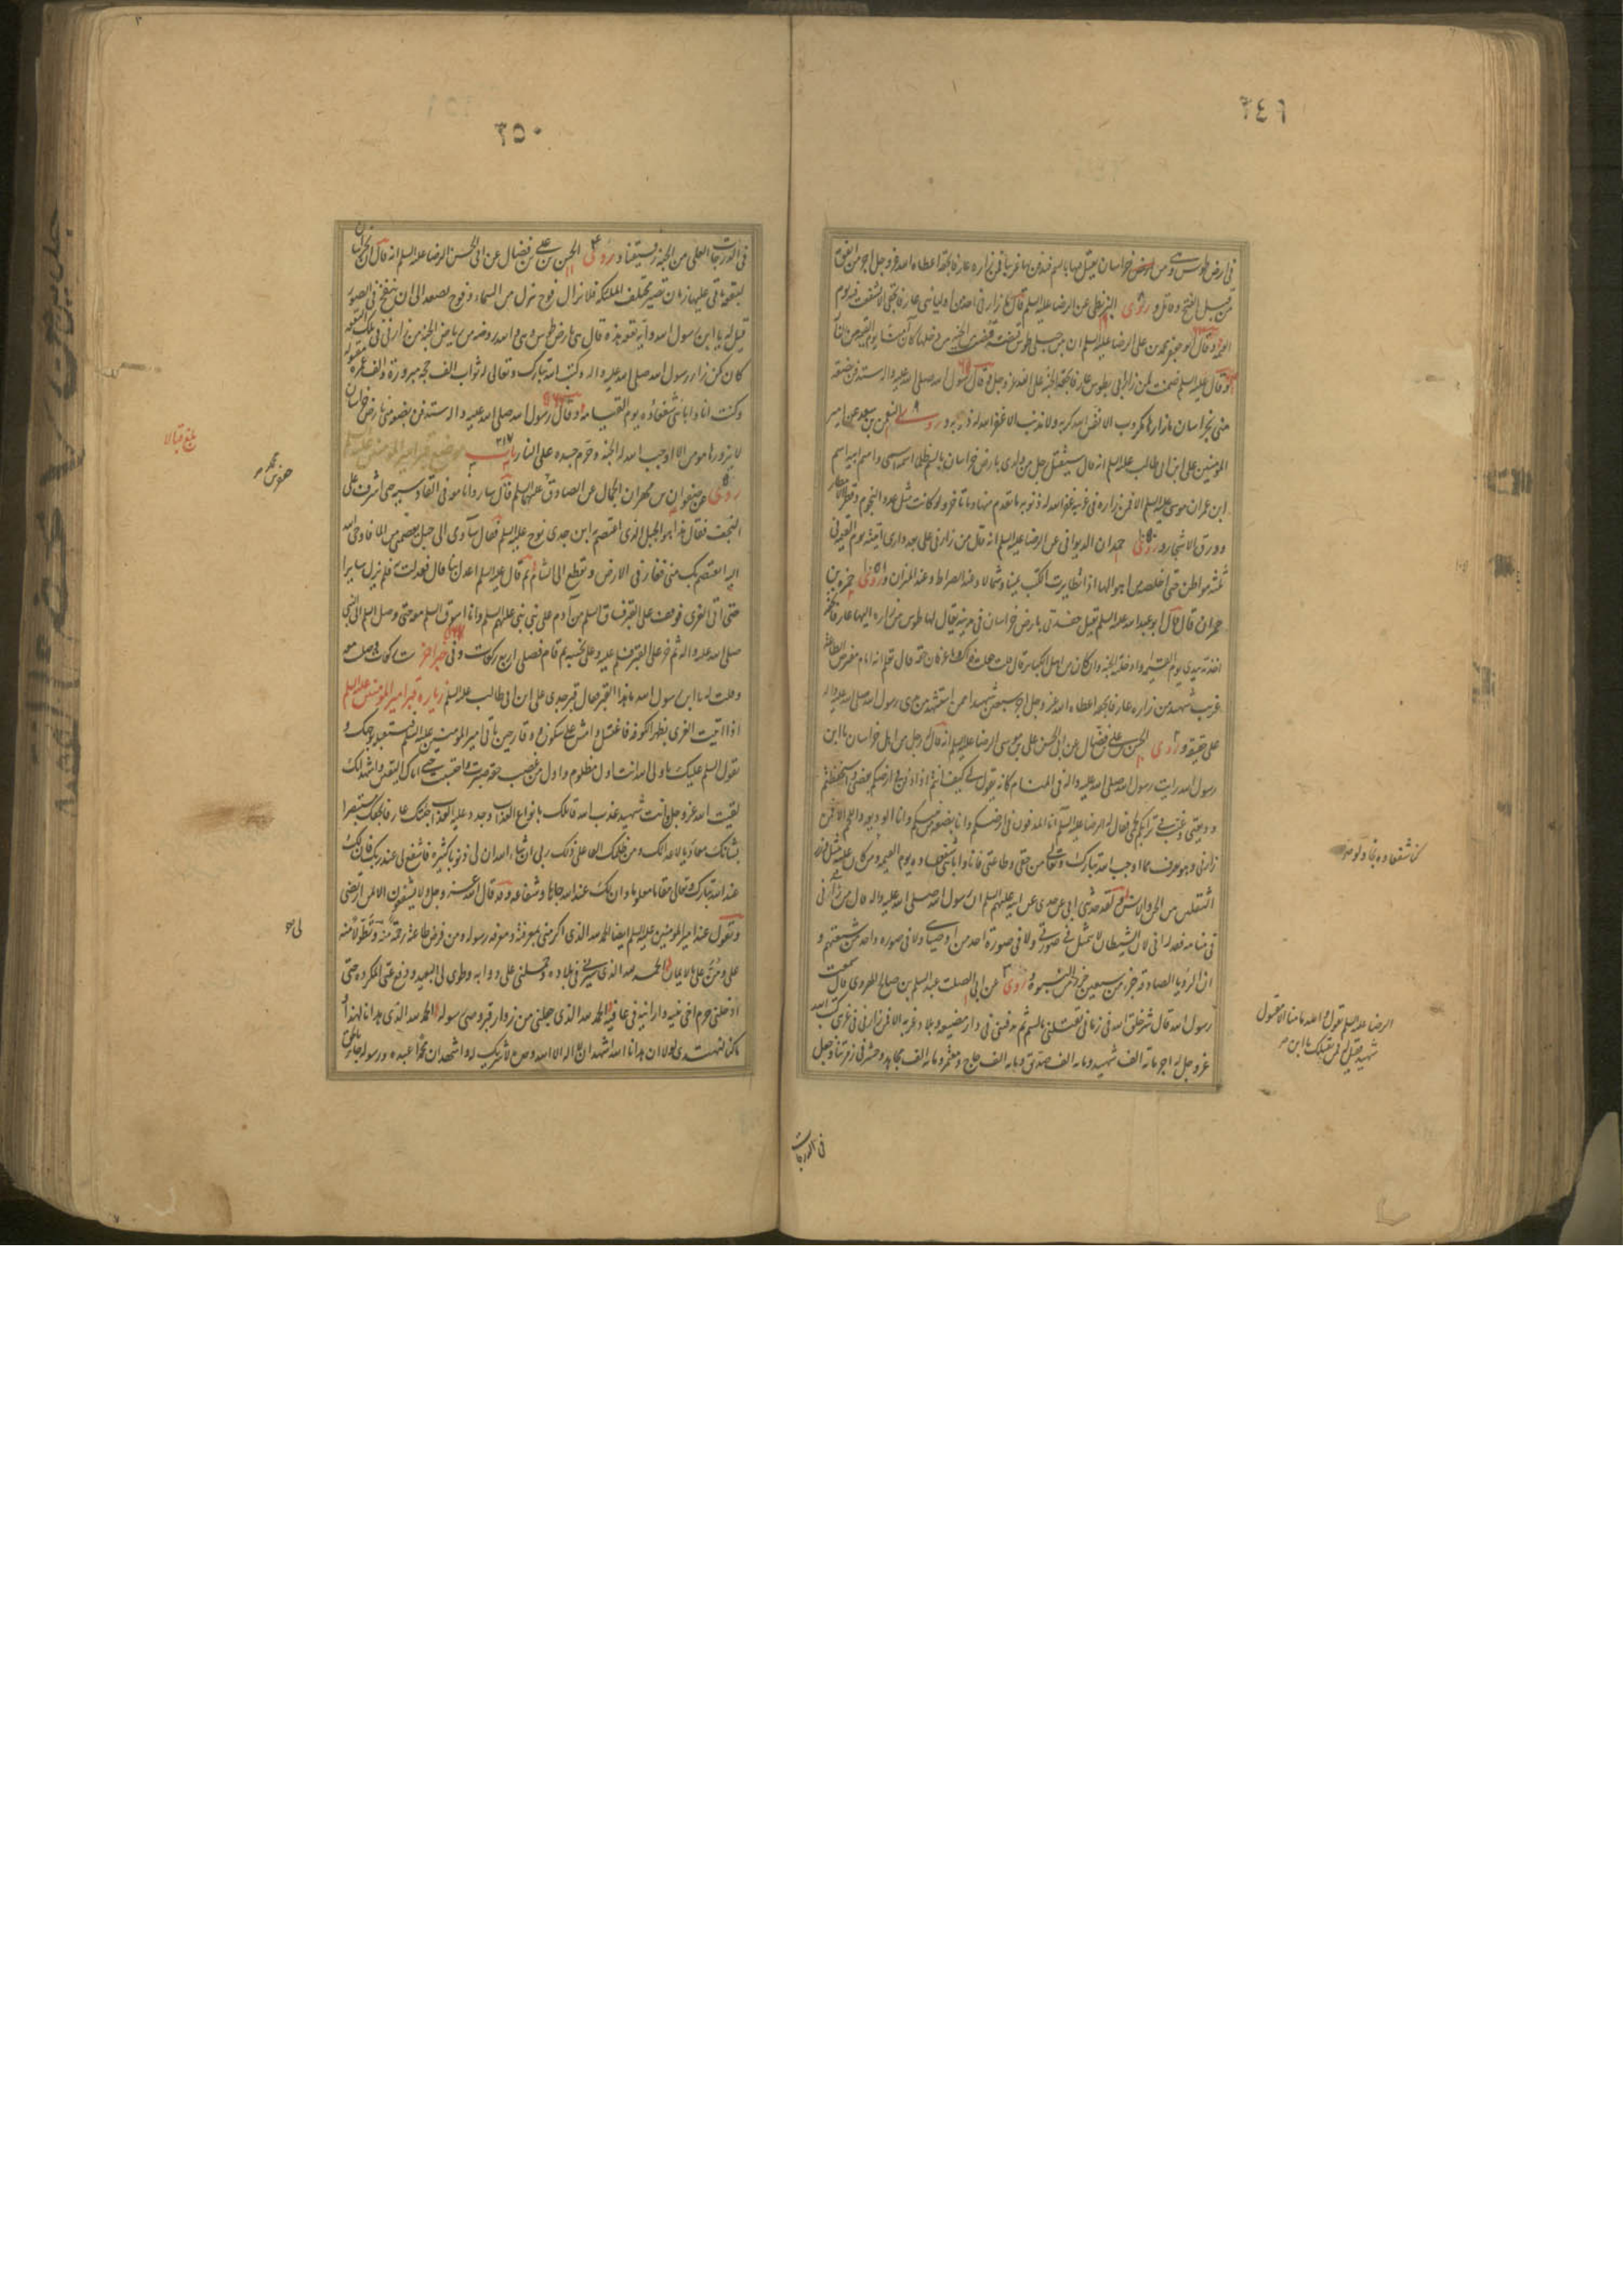 ٣٤٩
فى ارض طوس وهى من ارض خراسان يقتل فيها بالسم فيدفن بها غريبا فمن زاره عارفا بحقه اعطاه الله عز وجل اجر من انفق
من قبل الفتح وقاتل وروى البزنطى عن الرضا عليه السلم قال ما زارنى احد من اوليائى عارفا بحقى الا شفعت فيه يوم
القيمة وقال ابو جعفر محمد بن على الرضا عليه السلم ان بين جبلى طوس قبضة قبضت من الجنة من دخلها كان آمنا يوم القيمة من النار
وقال عليه السلم ضمنت لمن زار ابى بطوس عارفا بحقه الجنة على الله عز وجل وقال رسول الله صلى الله عليه واله ستدفن بضعة
منى بخراسان ما زارها مكروب الا نفس الله كربه ولا مذنب الا غفر الله له ذنوبه وروى النعمن بن سعد عن امير
المؤمنين على بن ابى طالب عليه السلم انه قال سيقتل رجل من ولدى بارض خراسان بالسم ظلما اسمه اسمى واسم ابيه اسم
ابن عمران موسى عليه السلم الا فمن زاره فى غربته غفر الله له ذنوبه ما تقدم منها وما تاخر ولو كانت مثل عدد النجوم وقطر الامطار
وورق الاشجار وروى حمدان الديوانى عن الرضا عليه السلم انه قال من زارنى على بعد دارى اتيته يوم القيمة فى
ثلثة مواطن حتى اخلصه من اهوالها اذا تطايرت الكتب يمينا وشمالا وعند الصراط وعند الميزان وروى حمزة بن
حمران قال قال ابو عبد الله عليه السلم يقتل حفدتى بارض خراسان فى مدينة يقال لها طوس من زاره اليها عارفا بحقه
اخذته بيدى يوم القيمة وادخلته الجنة وان كان من اهل الكبائر قال قلت جعلت فداك وما عرفان حقه قال تعلم انه امام مفترض الطاعة
غريب شهيد من زاره عارفا بحقه اعطاه الله عز وجل اجر سبعين شهيدا ممن استشهد بين يدى رسول الله صلى الله عليه واله
على حقيقة وروى الحسن بن على بن فضال عن ابى الحسن على بن موسى الرضا عليه السلم انه قال له رجل من اهل خراسان يا ابن
رسول الله رايت رسول الله صلى الله عليه واله فى المنام كانه يقول لى كيف انتم اذا دفن فى ارضكم بضعتى واستحفظتم
وديعتى وغيب فى ثراكم نجمى فقال له الرضا عليه السلم انا المدفون فى ارضكم وانا بضعة من نبيكم وانا الوديعة والنجم الا فمن
زارنى وهو يعرف ما اوجب الله تبارك وتعالى من حقى وطاعتى فانا وابائى شفعاؤه يوم القيمة ومن كان عليه مثل وزر
الثقلين من الجن والانس ولقد حدثنى ابى عن جدى عن ابيه عليهم السلم ان رسول الله صلى الله عليه واله قال من زآنى
فى منامه فقد رانى لان الشيطان لا يتمثل فى صورتى ولا فى صورة احد من اوصيائى ولا فى صورة واحد من شيعتهم و
ان الرؤيا الصادقة جزء من سبعين جزءا من النبوة وروى عن ابى الصلت عبد السلم بن صالح الهروى قال سمعت
رسول الله قال شر خلق الله فى زمانى يقتلنى بالسم ثم يدفننى فى دار مضيعة وبلاد غربة الا فمن زارنى فى غربتى كتب الله
عز وجل له اجر مائة الف شهيد ومائة الف صديق ومائة الف حاج ومعتمر ومائة الف مجاهد وحشر فى زمرتنا وجعل
فى الدرجات
الرضا عليه السلم يقول والله ما منا الا مقتول
شهيد فقيل له فمن يقتلك يا ابن
٣٥٠
فى الدرجات العلى من الجنة رفيقنا وروى الحسن بن على بن فضال عن ابى الحسن الرضا عليه السلم انه قال ان بخراسان
لبقعة ياتى عليها زمان تصير مختلف الملئكة فلا يزال فوج ينزل من السماء وفوج يصعد الى ان ينفخ فى الصور
قيل له يا ابن رسول الله واية بقعة هذه قال هى بارض طوس وهى والله روضة من رياض الجنة من زارنى فى تلك البقعة
كان كمن زار رسول الله صلى الله عليه واله وكتب الله تبارك وتعالى له ثواب الف حجة مبرورة والف عمرة مقبولة
وكنت انا وابائى شفعاؤه يوم القيامة وقال رسول الله صلى الله عليه واله ستدفن بضعة منى بارض خراسان
لا يزورها مومن الا اوجب الله له الجنة وحرم جسده على النار باب ٢١٧ موضع قبر امير المؤمنين عليه السلم
روى عن صفوان بن مهران الجمال عن الصادق عليه السلم قال سار وانا معه فى القادسية حتى اشرف على
النجف فقال هذا هو الجبل الذى اعتصم به ابن جدى نوح عليه السلم فقال سآوى الى جبل يعصمنى من الماء فاوحى الله
اليه ايعتصم بك منى فغار فى الارض وتقطع الى الشام ثم قال عليه السلم اعدل بنا قال فعدلت فلم يزل سايرا
حتى اتى الغرى فوقف على القبر فساق السلم من آدم على نبى نبى عليهم السلم وانا اسوق السلم معه حتى وصل السلم الى النبى
صلى الله عليه واله ثم خر على القبر فسلم عليه وعلا نحيبه ثم قام فصلى اربع ركعات وفى خبر اخر ست ركعات وصليت معه
وقلت له يا ابن رسول الله ما هذا القبر فقال قبر جدى على ابن ابى طالب عليه السلم زيارة قبر امير المؤمنين عليه السلم
اذا اتيت الغرى بظهر الكوفة فاغتسل وامش على سكون ووقار حتى تاتى امير المؤمنين عليه السلم فتستقبله بوجهك و
تقول السلم عليك يا ولى الله انت اول مظلوم واول من غصب حقه صبرت واحتسبت حتى اتاك اليقين واشهد انك
لقيت الله عز وجل وانت شهيد عذب الله قاتلك بانواع العذاب وجدد عليه العذاب جئتك عارفا بحقك مستبصرا
بشانك معاديا لاعدائك ومن ظلمك القى على ذلك ربى ان شاء الله ان لى ذنوبا كثيرة فاشفع لى عند ربك فان لك
عند الله تبارك وتعالى مقاما معلوما وان لك عند الله جاها وشفاعة وقد قال الله عز وجل ولا يشفعون الا لمن ارتضى
وتقول عند امير المؤمنين عليه السلم ايضا الحمد لله الذى اكرمنى بمعرفته ومعرفة رسوله ومن فرض طاعته رحمة منه وتطولا منه
على ومن على بالايمان الحمد لله الذى سيرنى فى بلاده وحملنى على دوابه وطوى لى البعيد ودفع عنى المكروه حتى
ادخلنى حرم اخى نبيه وارانيه فى عافية الحمد لله الذى جعلنى من زوار قبر وصى رسوله الحمد لله الذى هدانا لهذا و
ما كنا لنهتدى لولا ان هدانا الله اشهد ان لا اله الا الله وحده لا شريك له واشهد ان محمدا عبده ورسوله جاء بالحق